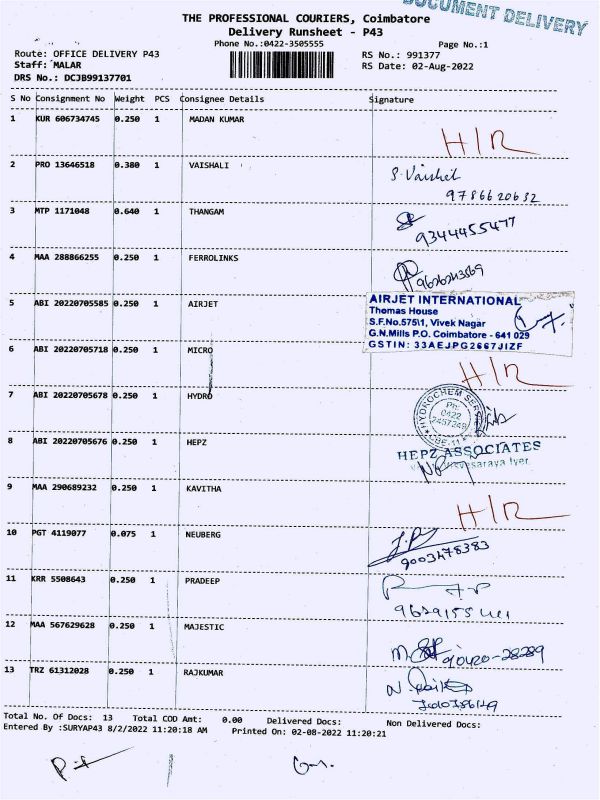 DOCUMENT DELIVERY
THE PROFESSIONAL COURIERS, Coimbatore
Delivery Runsheet - P43
Phone No.:0422-3505555
Page No.:1
Route: OFFICE DELIVERY P43
RS No.: 991377
Staff: MALAR
RS Date: 02-Aug-2022
DRS No.: DCJB99137701
S No Consignment No Weight PCS Consignee Details Signature
1 KUR 606734745 0.250 1 MADAN KUMAR
H/R
2 PRO 13646518 0.380 1 VAISHALI
S. Vaishali
9786620632
3 MTP 1171048 0.640 1 THANGAM
9344455477
4 MAA 288866255 0.250 1 FERROLINKS
9626243569
5 ABI 20220705585 0.250 1 AIRJET
AIRJET INTERNATIONAL
Thomas House
S.F.No.575\1, Vivek Nagar
G.N.Mills P.O. Coimbatore - 641 029
GSTIN: 33AEJPG2667J1ZF
6 ABI 20220705718 0.250 1 MICRO
H/R
7 ABI 20220705678 0.250 1 HYDRO
HYDROCHEM
Ph:
0422
2457249
CBE-11
8 ABI 20220705676 0.250 1 HEPZ
HEPZ ASSOCIATES
9 MAA 290689232 0.250 1 KAVITHA
H/R
10 PGT 4119077 0.075 1 NEUBERG
9003478383
11 KRR 5508643 0.250 1 PRADEEP
12 MAA 567629628 0.250 1 MAJESTIC
13 TRZ 61312028 0.250 1 RAJKUMAR
Total No. Of Docs: 13 Total COD Amt: 0.00 Delivered Docs: Non Delivered Docs:
Entered By :SURYAP43 8/2/2022 11:20:18 AM Printed On: 02-08-2022 11:20:21